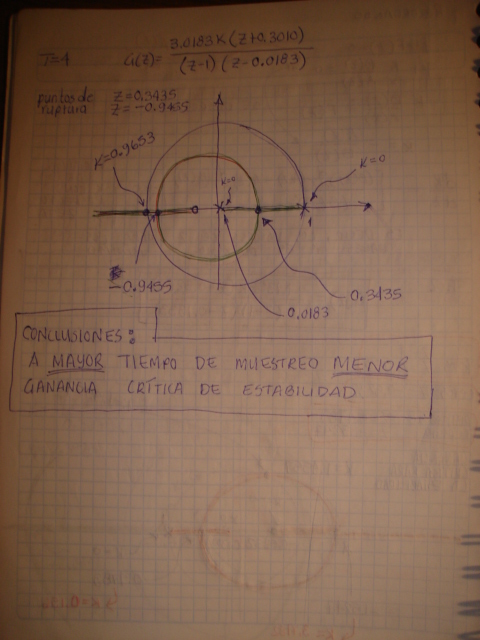 T=4 G(Z)= 3.0183K(Z+0.3010)
(Z-1)(Z-0.0183)
puntos de Z=0.3435
ruptura Z=-0.9455
K=0.9653
K=0
K=0
1
-0.9455
0.3435
0.0183
CONCLUSIONES:
A MAYOR TIEMPO DE MUESTREO MENOR
GANANCIA CRÍTICA DE ESTABILIDAD